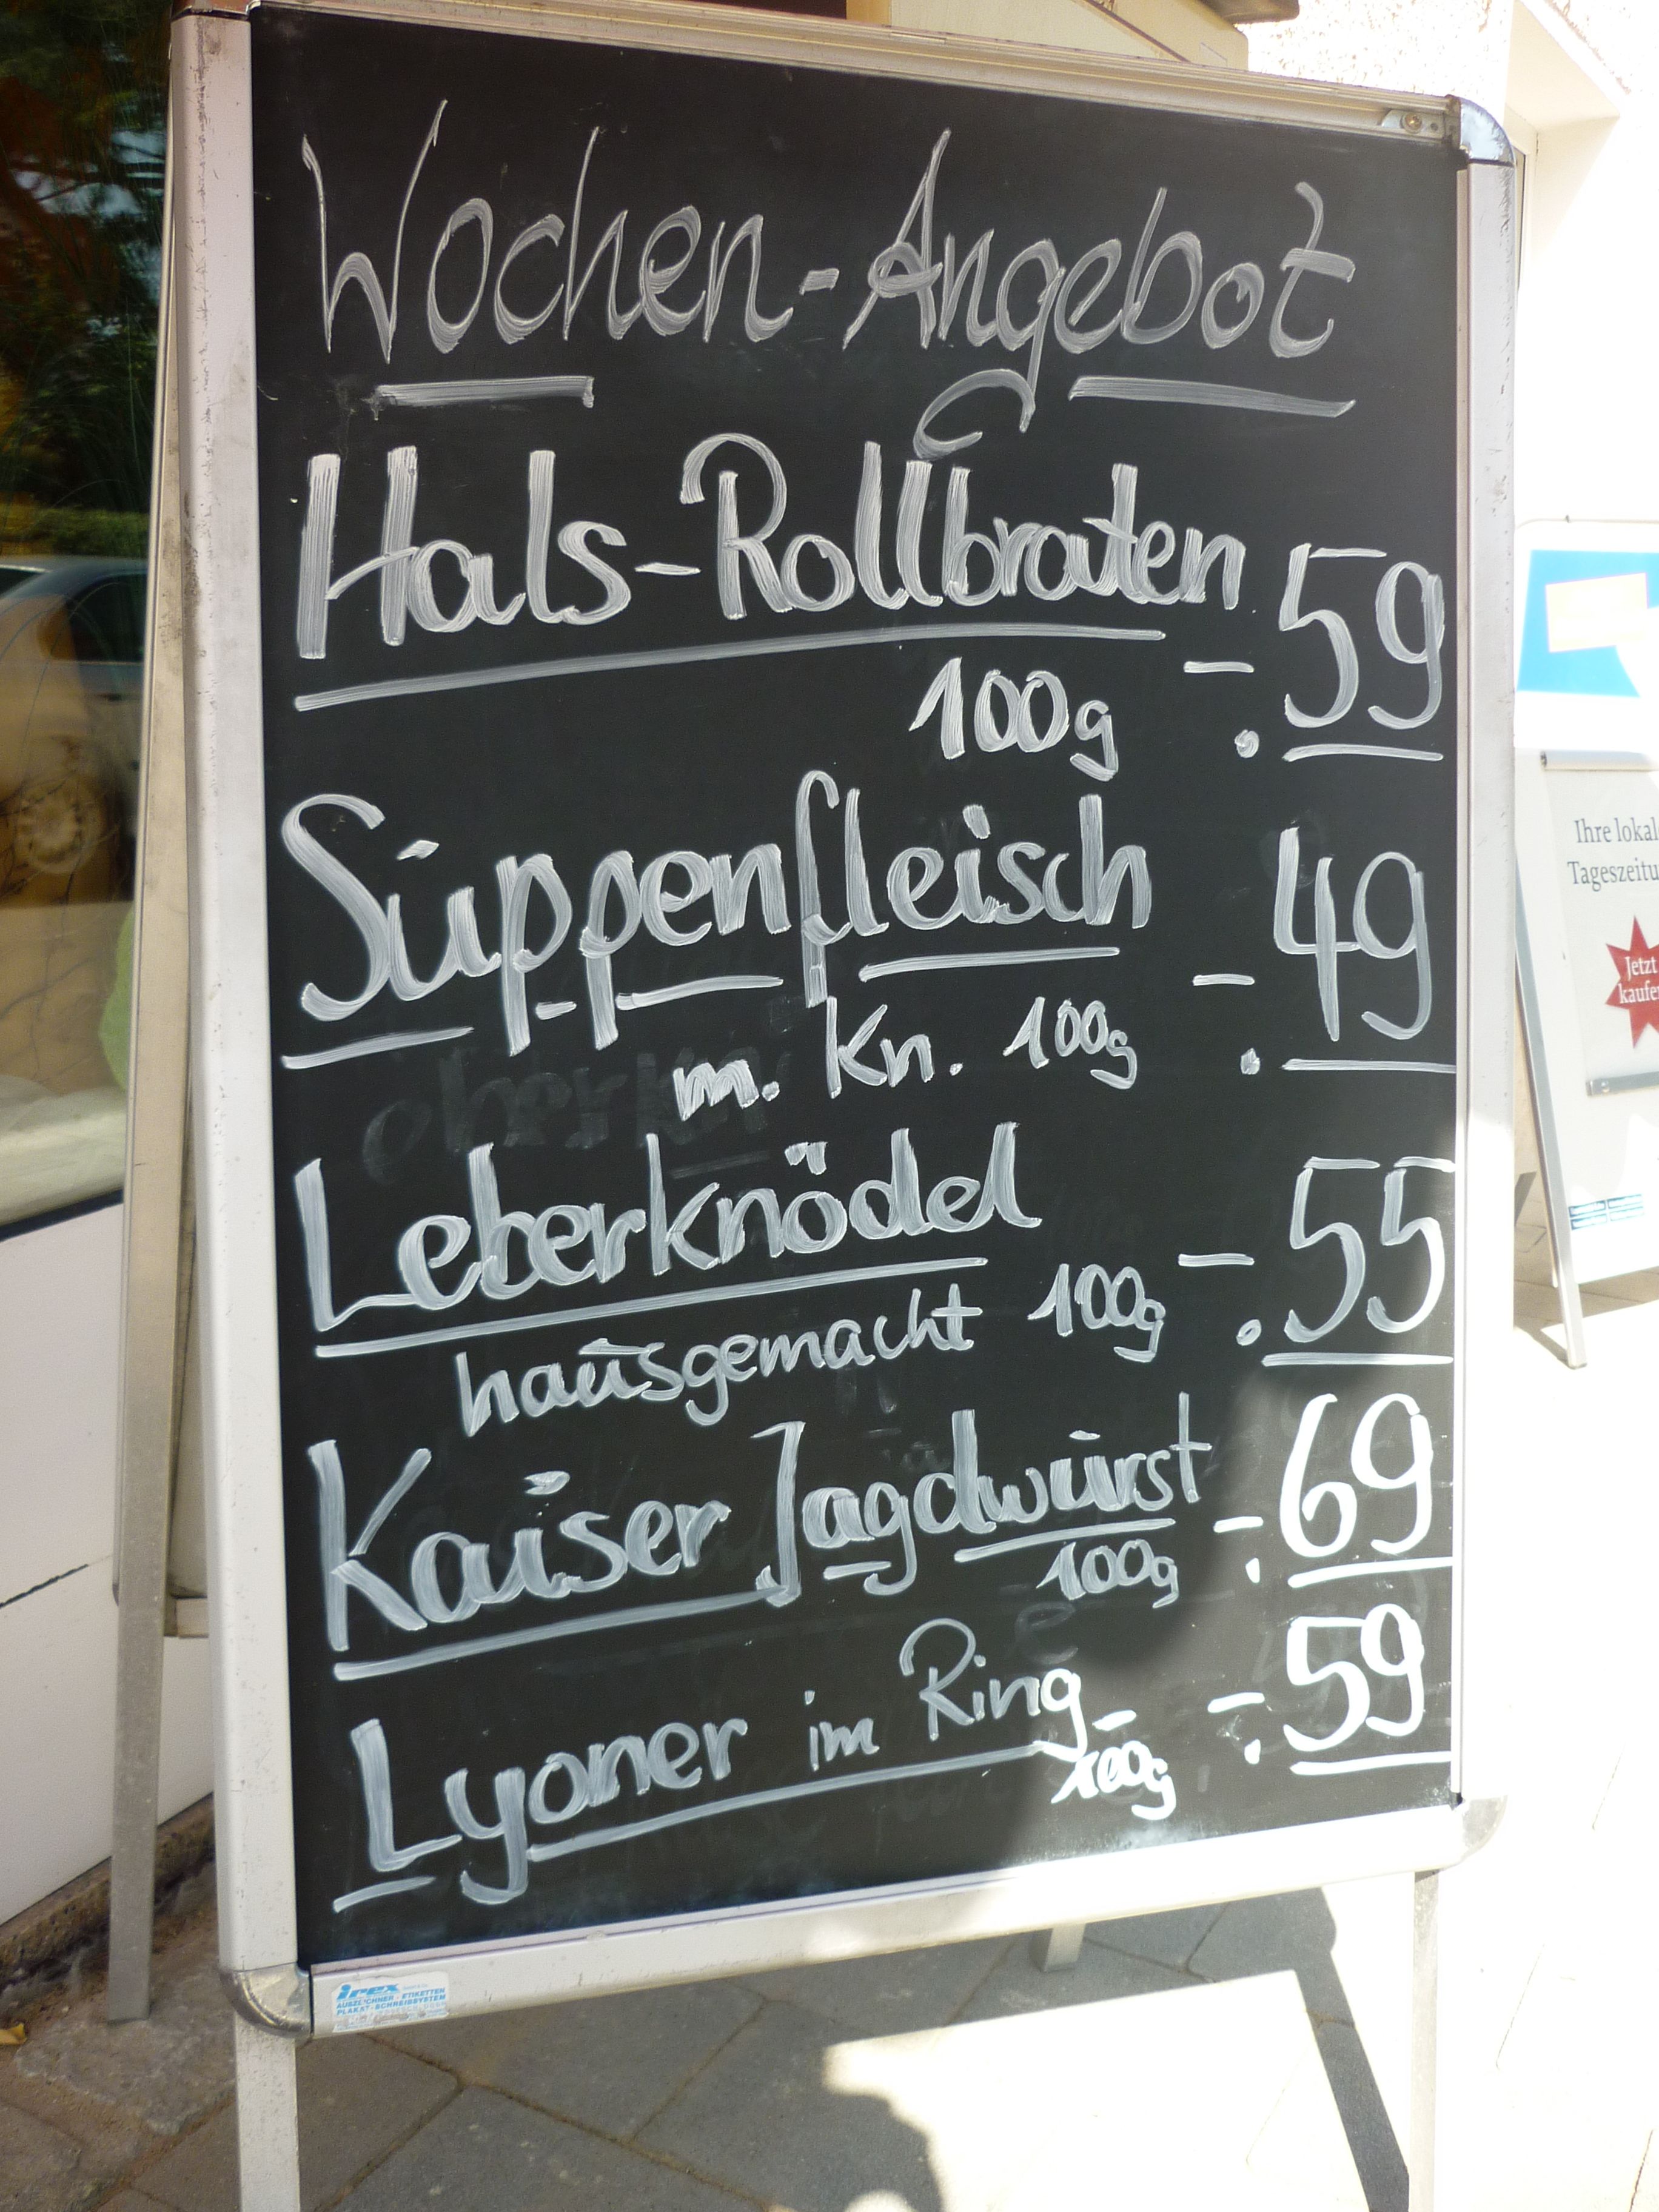 Wochen-Angebot
Hals-Rollbraten
100g -.59
Suppenfleisch
m. Kn. 100g -.49
Leberknödel
hausgemacht 100g -.55
Kaiser Jagdwurst
100g -.69
Lyoner im Ring
100g -.59
irex
AUSZEICHNER-ETIKETTEN
PLAKAT-SCHREIBSYSTEM
Ihre lokal
Tageszeitu
Jetzt
kaufe